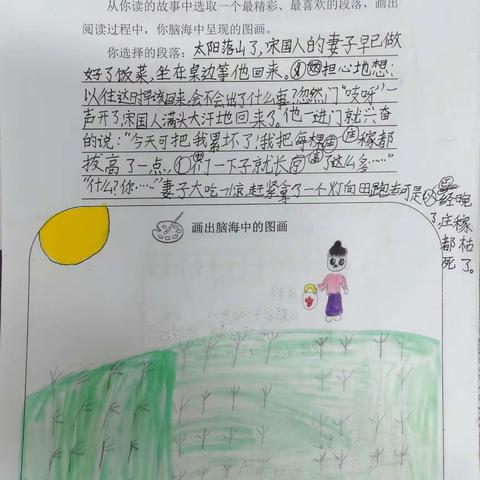 从你读的故事中选取一个最精彩、最喜欢的段落，画出
阅读过程中，你脑海中呈现的图画。
你选择的段落：太阳落山了，宋国人的妻子早已做
好了饭菜，坐在桌边等他回来。她担心地想：
以往这时早该回来，会不会出了什么事？忽然门“吱呀”一
声开了，宋国人满头大汗地回来了。他一进门就兴奋
的说：“今天可把我累坏了！我把每棵庄稼都
拔高了一点，它们一下子就长高了这么多……”
“什么？你……”妻子大吃一惊，赶紧拿了一个灯向田跑去可是已经晚
了，庄稼
都枯
死了。
画出脑海中的图画